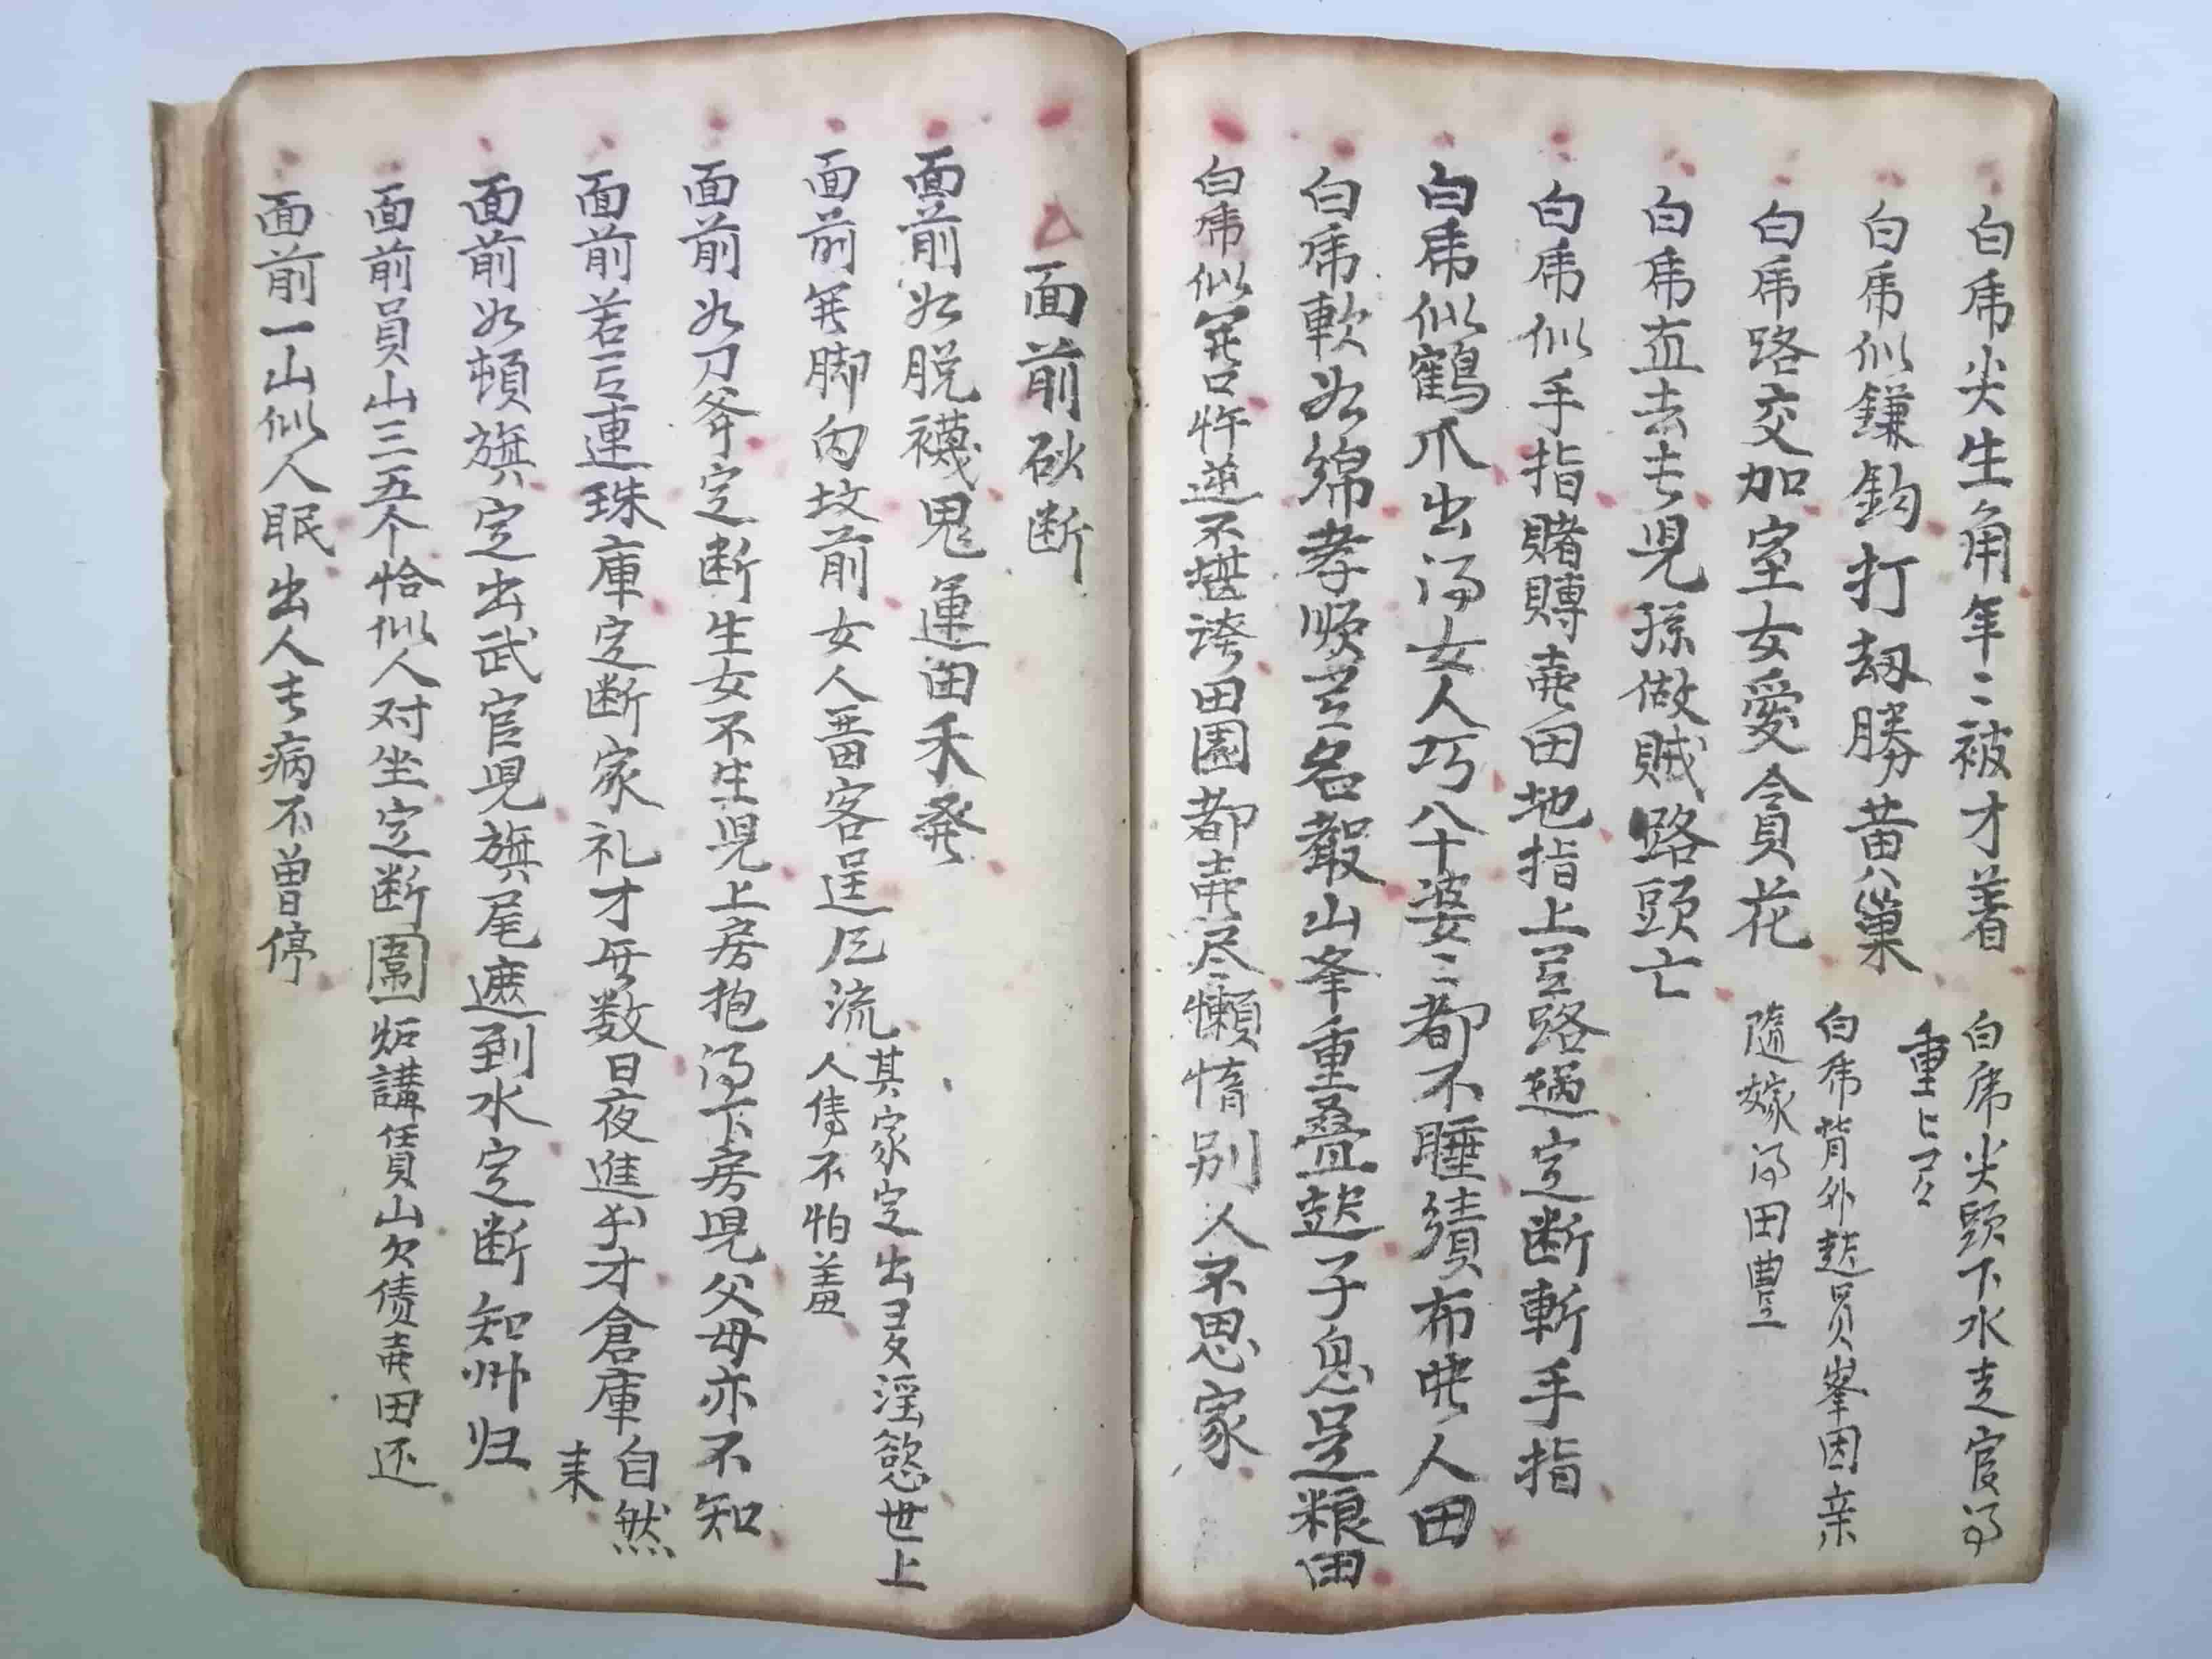 白虎尖生角年〻被才着
白虎尖頭下水走官司
重〻
白虎似鎌鈎打劫勝黄巢
白虎背外起員峯因亲
隨嫁得田豊
白虎路交加室女愛貪花
白虎直去去兒孫做賊路頭亡
白虎似手指賭賻賣田地指上路過定断斬手指
白虎似鶴爪出得女人巧八十婆〻都不睡績布人田
白虎軟如綿孝順名山峯重叠起子息足粮田
白虎似開口忤逆不堪誇田園都賣尽懶惰别人不思家
面前砂断
面前如脱襪鬼運田禾發
面前開脚内坟前女人畨客逞風流
其家定出多淫慾世上
人傳不怕羞
面前如刀斧定断生女不生兒上房抱得下房兒父母亦不知
面前若連珠庫定断家礼才無数日夜進才倉庫
自然
来
面前如頓旗定出武官兒旗尾遮到水定断知帅归
面前員山三五个恰似人对坐定断圍炻講賃山欠债賣田还
面前一山似人眠出人病不曾停